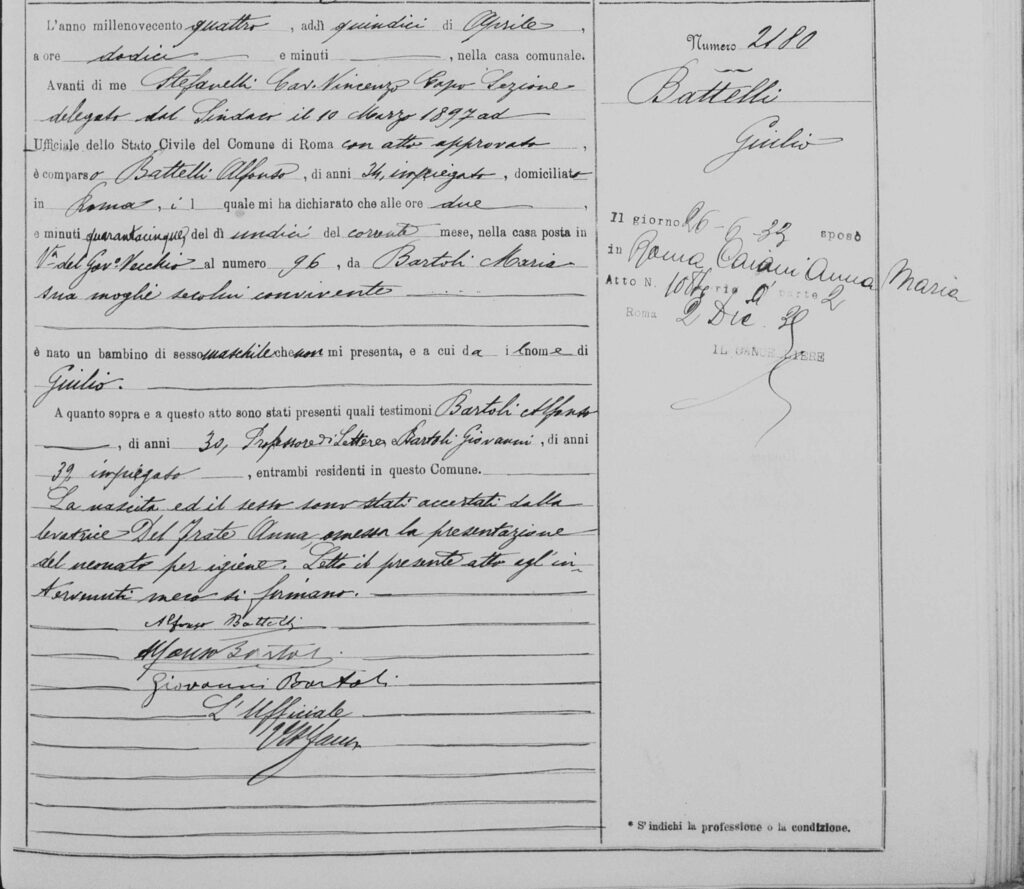 L'anno millenovecento quattro, addì quindici di Aprile,
a ore dodici e minuti , nella casa comunale.
Avanti di me Stefanelli Cav. Vincenzo Capo Sezione
delegato dal Sindaco il 10 Marzo 1897 ad
Ufficiale dello Stato Civile del Comune di Roma con atto approvato,
è comparso Battelli Alfonso, di anni 34, impiegato, domiciliato
in Roma, il quale mi ha dichiarato che alle ore due,
e minuti quarantacinque, del dì undici del corrente mese, nella casa posta in
Va del Govo Vecchio al numero 96, da Bartoli Maria
sua moglie secolui convivente
è nato un bambino di sesso maschile che non mi presenta, e a cui da il nome di
Giulio.
A quanto sopra e a questo atto sono stati presenti quali testimoni Bartoli Alfonso
, di anni 30, Professore di Lettere, Bartoli Giovanni, di anni
39 impiegato , entrambi residenti in questo Comune.
La nascita ed il sesso sono stati accertati dalla
levatrice Del Frate Anna, omessa la presentazione
del neonato per igiene. Letto il presente atto agl'in-
tervenuti meco si firmano.
Alfonso Battelli
Alfonso Bartoli
Giovanni Bartoli
L'Ufficiale
Numero 2180
Battelli
Giulio
Il giorno 26-6-33 sposò
in Roma Anna Maria
Atto N. parte 2
Roma 2 Dic.
IL CANCELLIERE
* S'indichi la professione o la condizione.